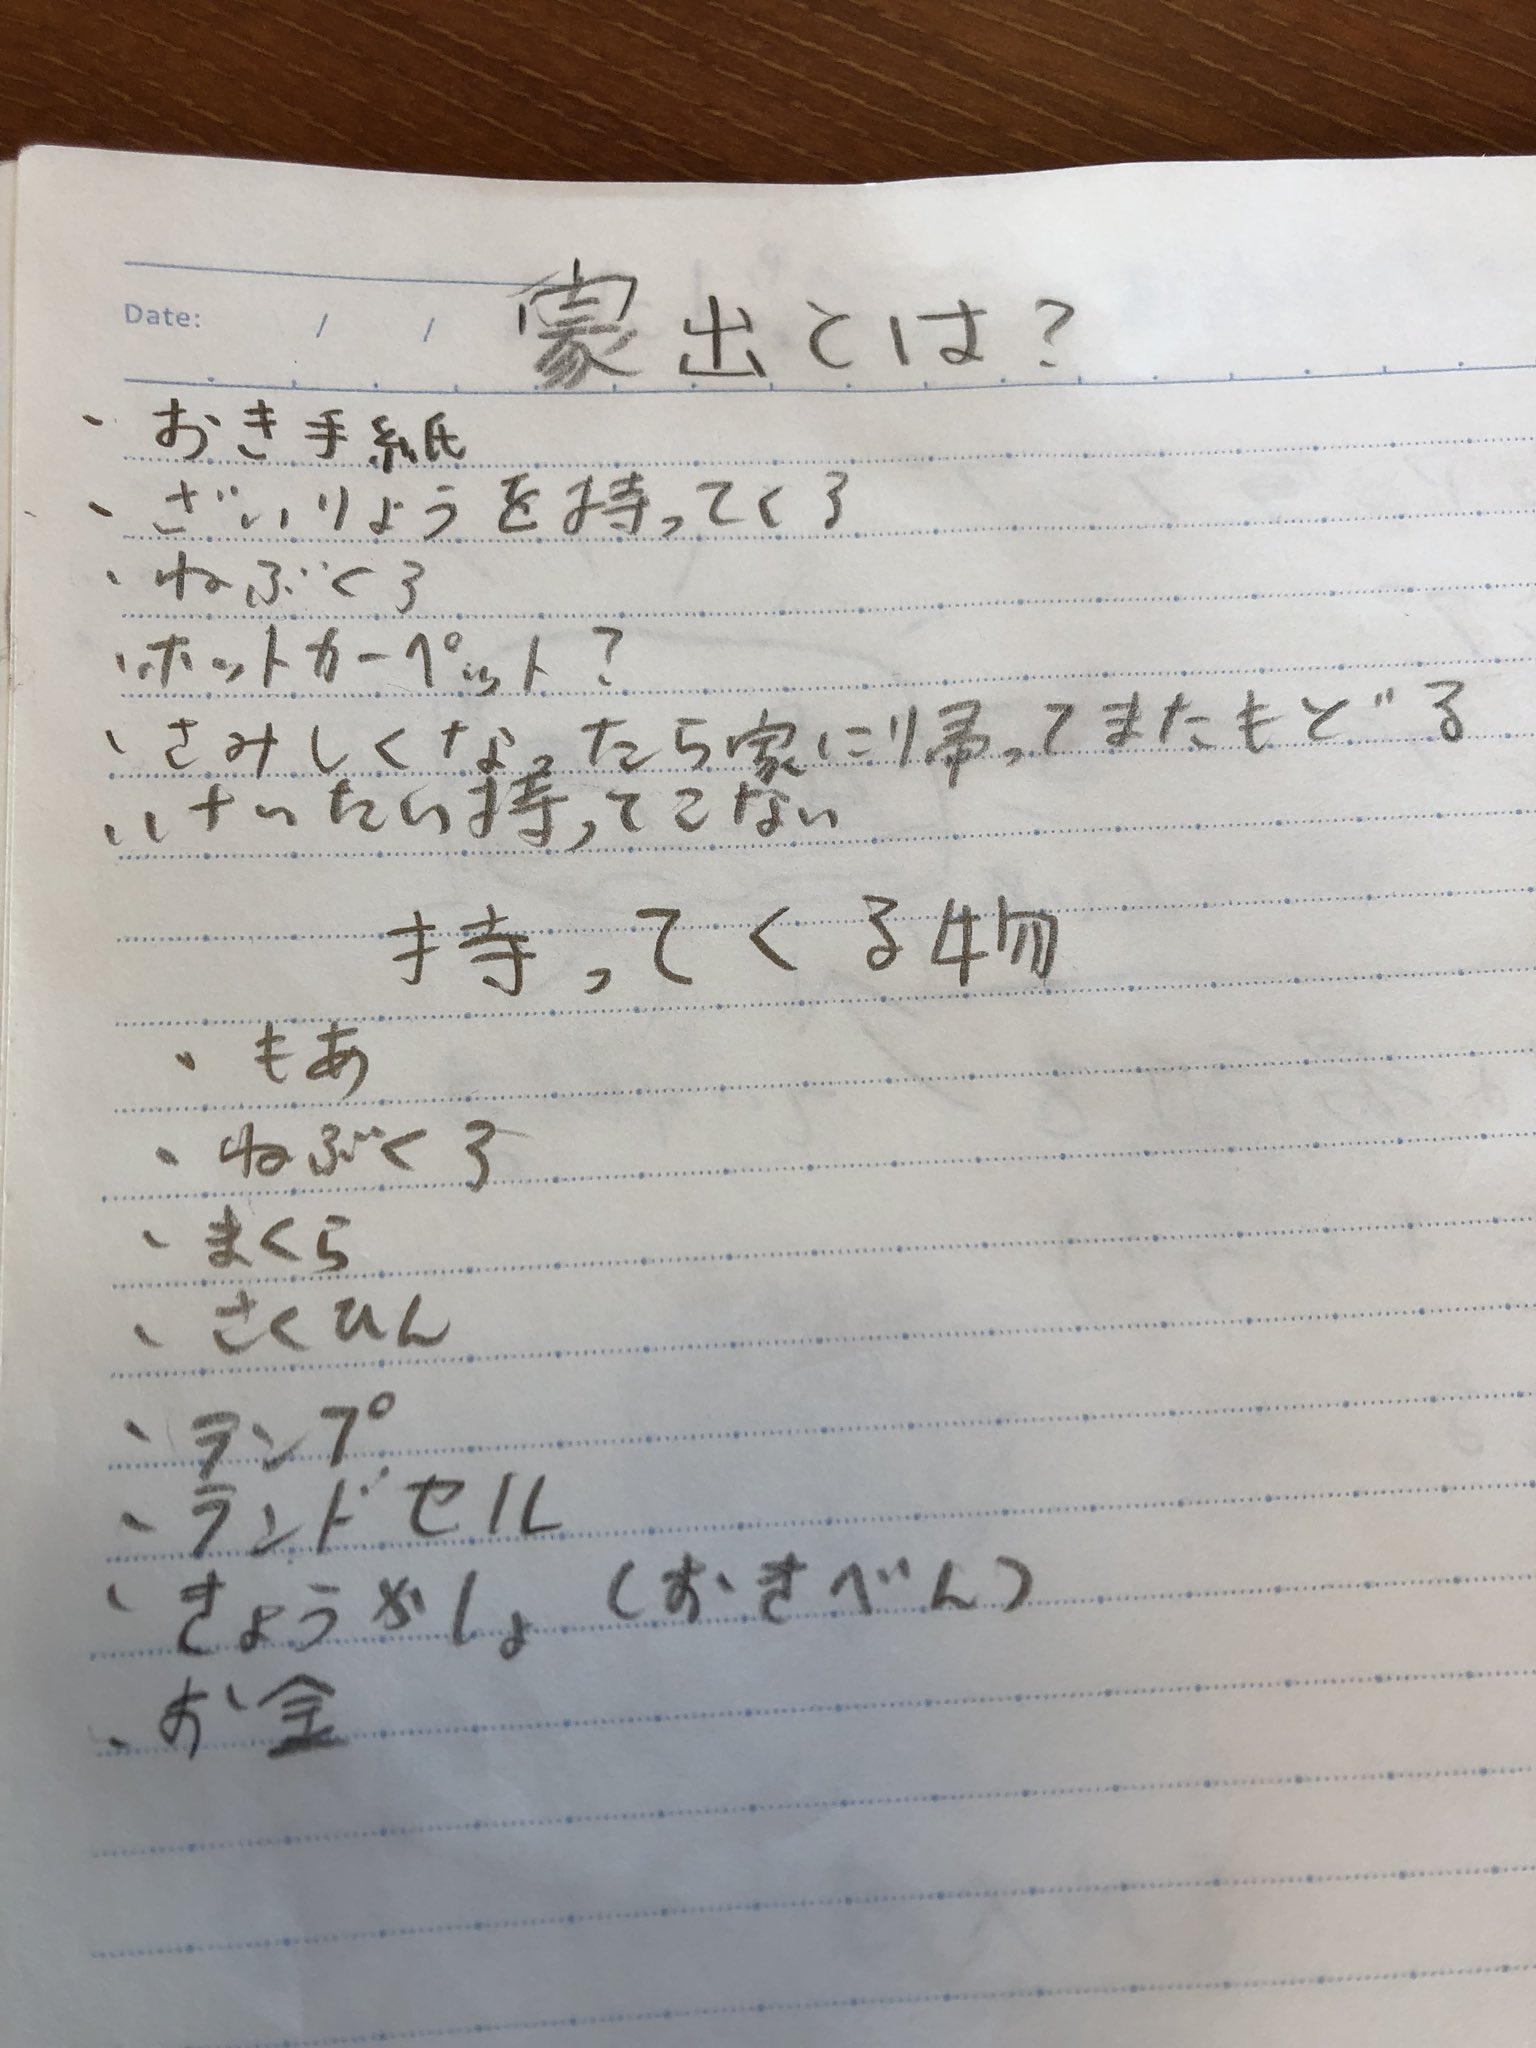 Date: / /
家出とは?
・おき手紙
・ざいりょうを持ってくる
・ねぶくろ
・ホットカーペット?
・さみしくなったら家に帰ってまたもどる
・けいたい持ってこない
持ってくる物
・もあ
・ねぶくろ
・まくら
・さくひん
・ランプ
・ランドセル
・きょうかしょ(おきべん)
・お金